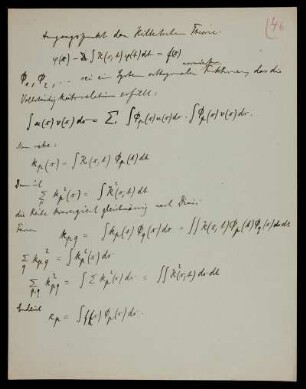 Ausgangspunkt der Hilbertschen Theorie
φ(s) − λ∫K(s,t) φ(t)dt = f(s)
Φ₁, Φ₂, ... sei ein System orthogonaler Funktionen, das die
normierter
Vollständigkeitsrelation erfüllt:
∫u(s)v(s)ds = Σ ∫Φp(s)u(s)ds · ∫Φp(s)v(s)ds.
Man setze:
kp(s) = ∫K(s,t) Φp(t)dt
Dann ist
Σ kp²(s) = ∫K²(s,t)dt
die Reihe konvergiert gleichmässig nach Dini.
Ferner kpq = ∫kp(s)Φq(s)ds = ∫∫K(s,t)Φp(t)Φq(s)dsdt
Σ kpq² = ∫kp²(s)ds
Σ kpq² = ∫Σ kp²(s)ds = ∫∫K²(s,t)dsdt
Endlich ap = ∫f(s)Φp(s)ds.